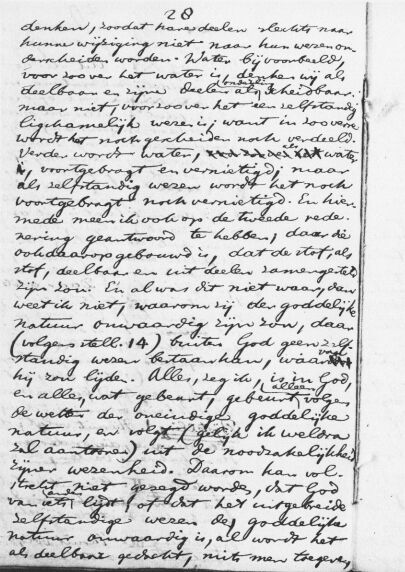 28
denken, zoodat hare deelen slechts naar
hunne wijziging niet naar hun wezen on-
derscheiden worden. Water bijvoorbeeld,
voor zoover het water is, denken wij als
deelbaar en zijne deelen als scheidbaar;
maar niet, voor zoover het een zelfstandig
ligchamelijk wezen is; want in zooverre
wordt het noch gescheiden noch verdeeld.
Verder wordt water, als water
is, voortgebragt en vernietigd; maar
als zelfstandig wezen wordt het noch
voortgebragt noch vernietigd. En hier-
mede meen ik ook op de tweede rede-
nering geantwoord te hebben, daar die
ook daarop gebouwd is, dat de stof, als
stof, deelbaar en uit deelen zamengesteld
zijn zou. En al was dit niet waar, dan
weet ik niet, waarom zij der goddelijke
natuur onwaardig zijn zou, daar
(volgens stell. 14) buiten God geen zelf-
standig wezen bestaan kan, waarvan
hij zou lijden. Alles, zeg ik, is in God,
en alles, wat gebeurt, gebeurt alleen volgens
de wetten der oneindige goddelijke
natuur, en volgt (gelijk ik weldra
zal aantoonen) uit de noodzakelijkheid
zijner wezenheid. Daarom kan vol-
strekt niet gezegd worden, dat God
van iets anders lijdt, of dat het uitgebreide
zelfstandige wezen de goddelijke
natuur onwaardig is, al wordt het
als deelbaar gedacht, mits men toegeve,